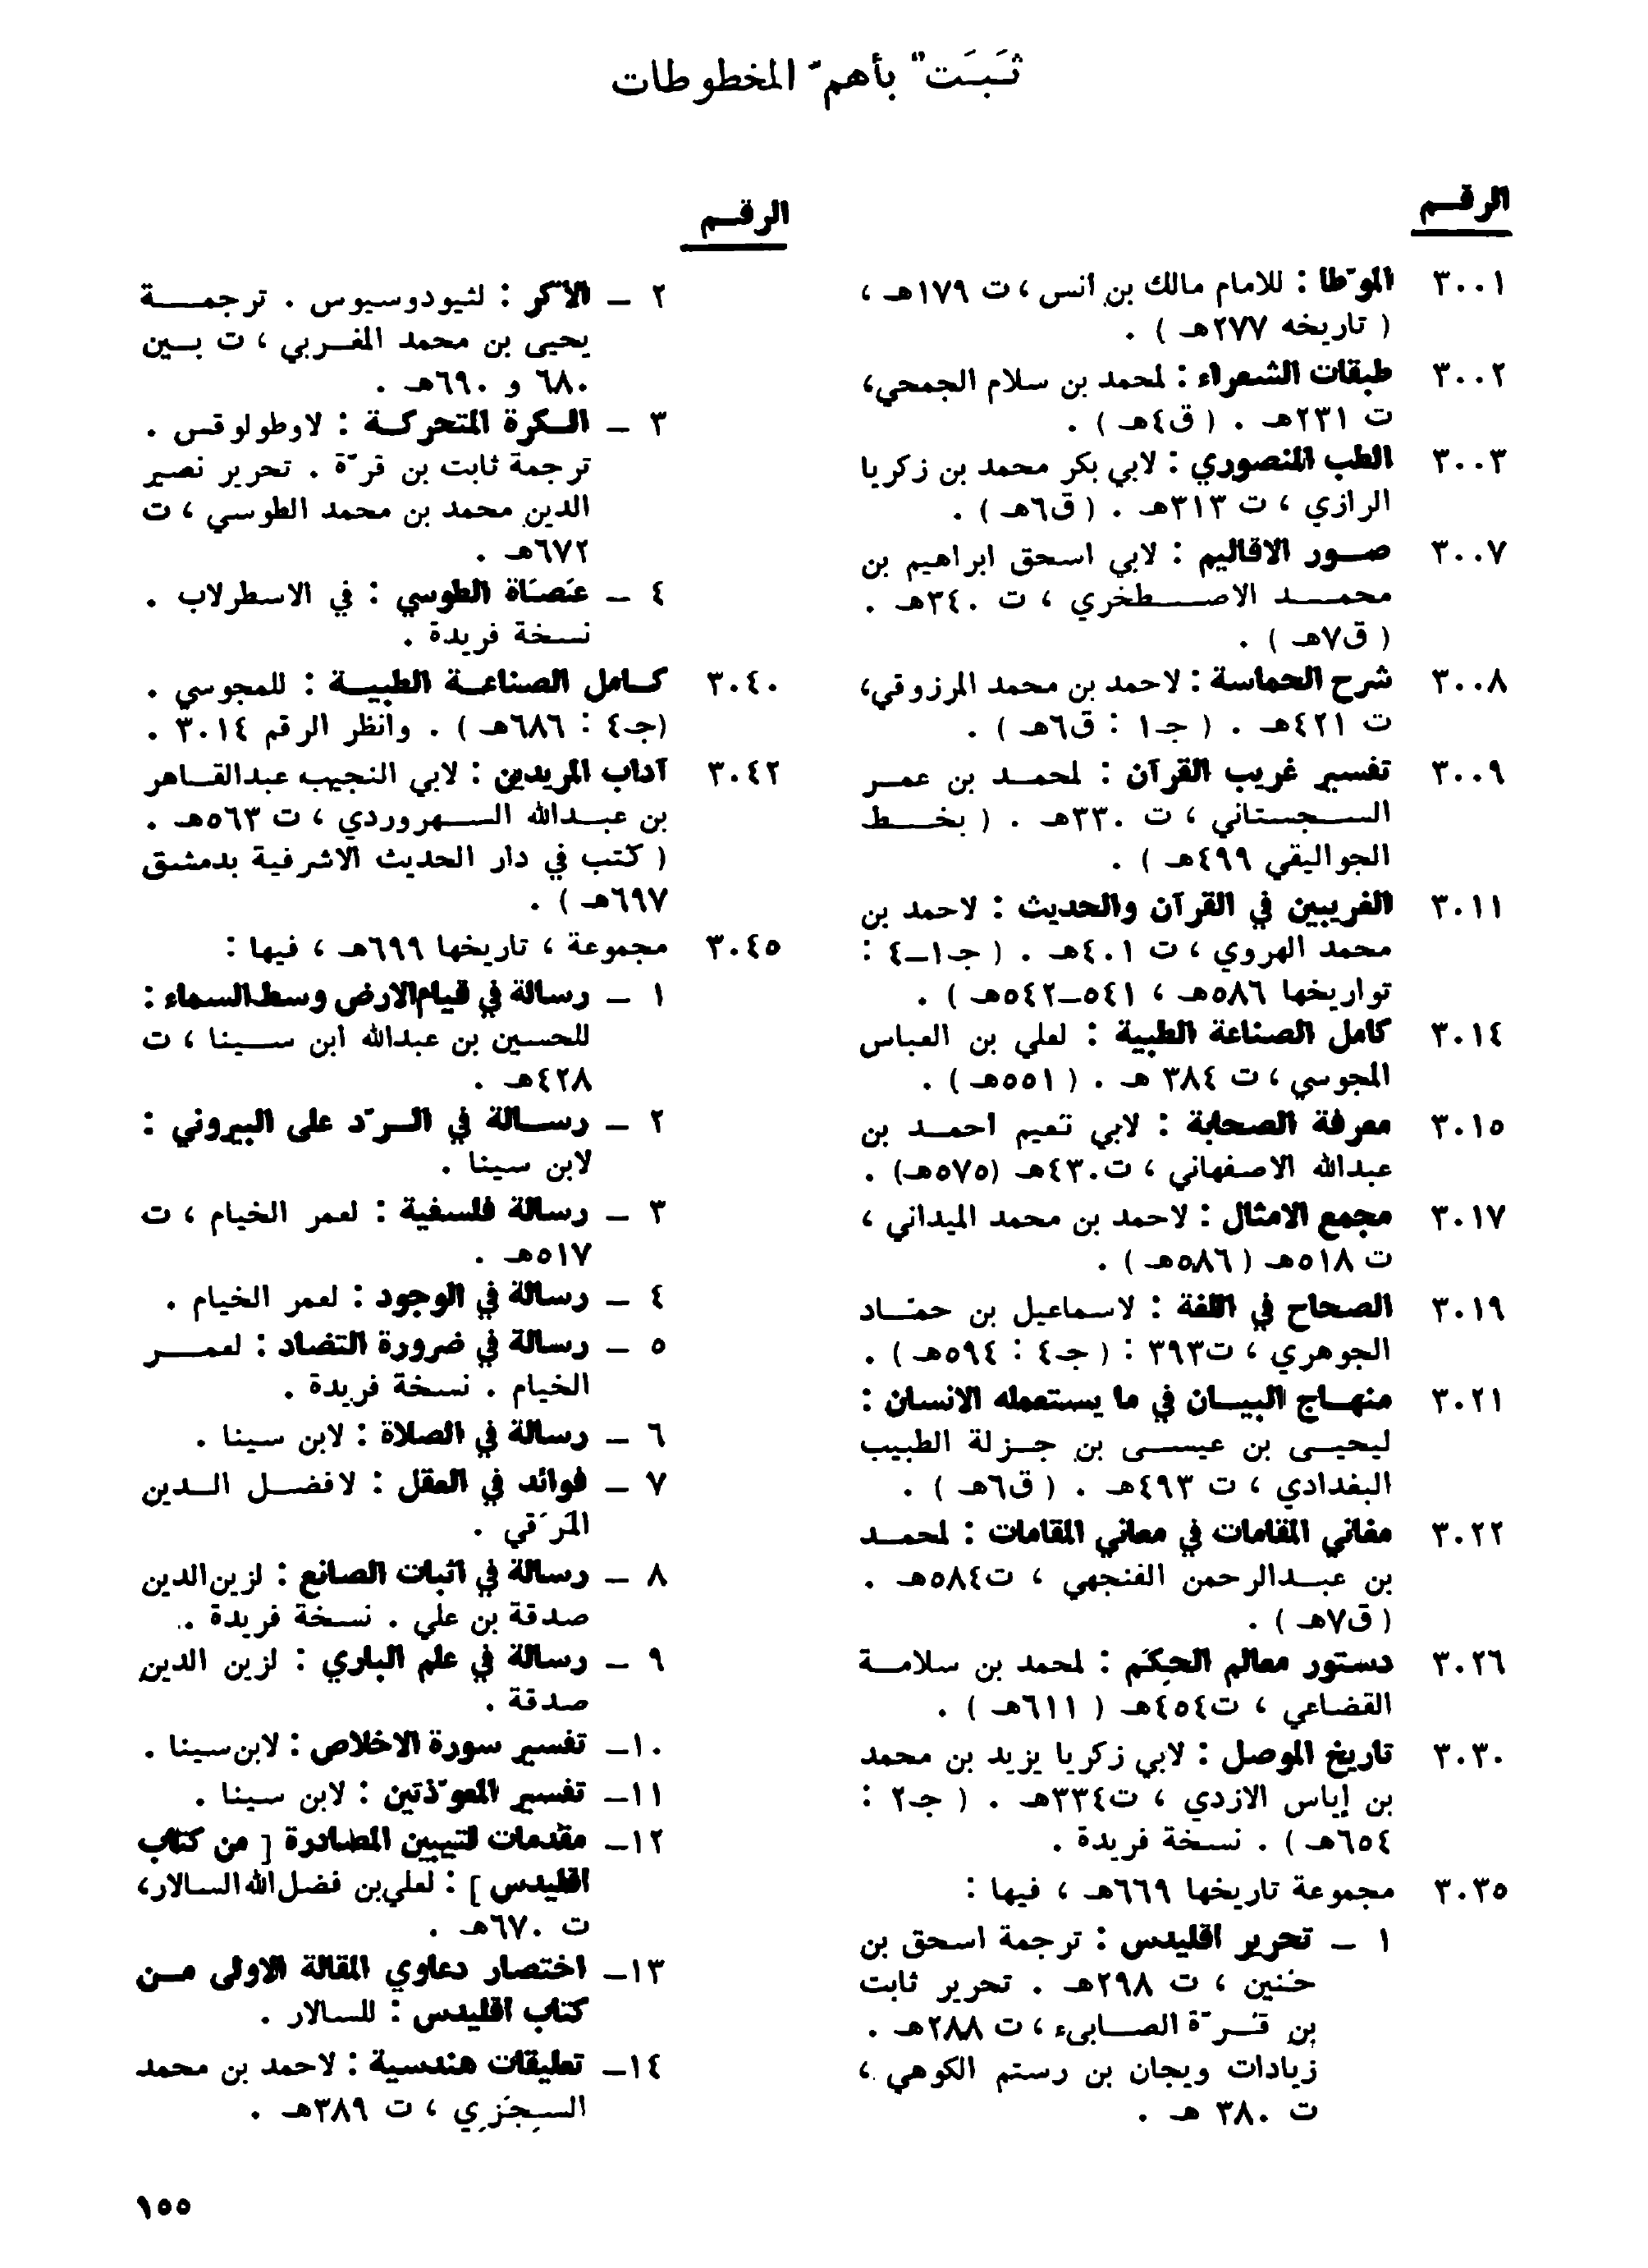 ثَبَتٌ بأهمّ المخطوطات
الرقم
٣٠٠١ الموّطا : للامام مالك بن انس ، ت ١٧٩هـ ،
( تاريخه ٢٧٧هـ ) .
٣٠٠٢ طبقات الشعراء : لمحمد بن سلام الجمحي،
ت ٢٣١هـ . ( ق٤هـ ) .
٣٠٠٣ الطب المنصوري : لابي بكر محمد بن زكريا
الرازي ، ت ٣١٣هـ . ( ق٦هـ ) .
٣٠٠٧ صور الاقاليم : لابي اسحق ابراهيم بن
محمد الاصطخري ، ت ٣٤٠هـ .
( ق٧هـ ) .
٣٠٠٨ شرح الحماسة : لاحمد بن محمد المرزوقي،
ت ٤٢١هـ . ( جـ١ : ق٦هـ ) .
٣٠٠٩ تفسير غريب القرآن : لمحمد بن عمر
السجستاني ، ت ٣٣٠هـ . ( بخط
الجواليقي ٤٩٩هـ ) .
٣٠١١ الغريبين في القرآن والحديث : لاحمد بن
محمد الهروي ، ت ٤٠١هـ . ( جـ١-٤ :
تواريخها ٥٨٦هـ ، ٥٤١-٥٤٢هـ ) .
٣٠١٤ كامل الصناعة الطبية : لعلي بن العباس
المجوسي ، ت ٣٨٤ هـ . ( ٥٥١هـ ) .
٣٠١٥ معرفة الصحابة : لابي نعيم احمد بن
عبدالله الاصفهاني ، ت٤٣٠هـ (٥٧٥هـ) .
٣٠١٧ مجمع الامثال : لاحمد بن محمد الميداني ،
ت ٥١٨هـ ( ٥٨٦هـ ) .
٣٠١٩ الصحاح في اللغة : لاسماعيل بن حمّاد
الجوهري ، ت٣٩٣ : ( جـ٤ : ٥٩٤هـ ) .
٣٠٢١ منهاج البيان في ما يستعمله الانسان :
ليحيى بن عيسى بن جزلة الطبيب
البغدادي ، ت ٤٩٣هـ . ( ق٦هـ ) .
٣٠٢٢ مغاني المقامات في معاني المقامات : لمحمد
بن عبدالرحمن الفنجهي ، ت٥٨٤هـ .
( ق٧هـ ) .
٣٠٢٦ دستور معالم الحِكَم : لمحمد بن سلامة
القضاعي ، ت٤٥٤هـ ( ٦١١هـ ) .
٣٠٣٠ تاريخ الموصل : لابي زكريا يزيد بن محمد
بن إياس الازدي ، ت٣٣٤هـ . ( جـ٢ :
٦٥٤هـ ) . نسخة فريدة .
٣٠٣٥ مجموعة تاريخها ٦٦٩هـ ، فيها :
١ – تحرير اقليدس : ترجمة اسحق بن
حُنين ، ت ٢٩٨هـ . تحرير ثابت
بن قرّة الصابيء ، ت ٢٨٨هـ .
زيادات ويجان بن رستم الكوهي ،
ت ٣٨٠ هـ .
الرقم
٢ – الأكر : لثيودوسيوس . ترجمة
يحيى بن محمد المغربي ، ت بين
٦٨٠ و ٦٩٠هـ .
٣ – الكرة المتحركة : لاوطولوقس .
ترجمة ثابت بن قرّة . تحرير نصير
الدين محمد بن محمد الطوسي ، ت
٦٧٢هـ .
٤ – عَصَاة الطوسي : في الاسطرلاب .
نسخة فريدة .
٣٠٤٠ كامل الصناعة الطبية : للمجوسي .
(جـ٤ : ٦٨٦هـ ) . وانظر الرقم ٣٠١٤ .
٣٠٤٢ آداب المريدين : لابي النجيب عبدالقاهر
بن عبدالله السهروردي ، ت ٥٦٣هـ .
( كتب في دار الحديث الاشرفية بدمشق
٦٩٧هـ ) .
٣٠٤٥ مجموعة ، تاريخها ٦٩٩هـ ، فيها :
١ – رسالة في قيام الارض وسط السماء :
للحسين بن عبدالله ابن سينا ، ت
٤٢٨هـ .
٢ – رسالة في الردّ على البيروني :
لابن سينا .
٣ – رسالة فلسفية : لعمر الخيام ، ت
٥١٧هـ .
٤ – رسالة في الوجود : لعمر الخيام .
٥ – رسالة في ضرورة التضاد : لعمر
الخيام . نسخة فريدة .
٦ – رسالة في الصلاة : لابن سينا .
٧ – فوائد في العقل : لافضل الدين
المَرَقي .
٨ – رسالة في اثبات الصانع : لزين الدين
صدقة بن علي . نسخة فريدة .
٩ – رسالة في علم الباري : لزين الدين
صدقة .
١٠– تفسير سورة الاخلاص : لابن سينا .
١١– تفسير المعوّذتين : لابن سينا .
١٢– مقدمات لتبيين المصادرة [ من كتاب
اقليدس ] : لعلي بن فضل الله السالار،
ت ٦٧٠هـ .
١٣– اختصار دعاوي المقالة الاولى من
كتاب اقليدس : للسالار .
١٤– تعليقات هندسية : لاحمد بن محمد
السِجْزي ، ت ٣٨٩هـ .
١٥٥